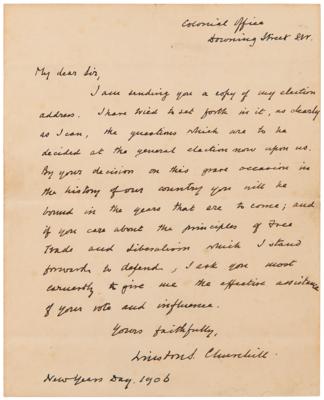 Colonial Office
Downing Street S.W.
My dear Sir,
I am sending you a copy of my election
address. I have tried to set forth in it, as clearly
as I can, the questions which are to be
decided at the general election now upon us.
By your decision on this grave occasion in
the history of our country you will be
bound in the years that are to come; and
if you care about the principles of Free
Trade and Liberalism which I stand
forward to defend, I ask you most
earnestly to give me the effective assistance
of your vote and influence.
Yours faithfully,
Winston S. Churchill.
New Years Day. 1906